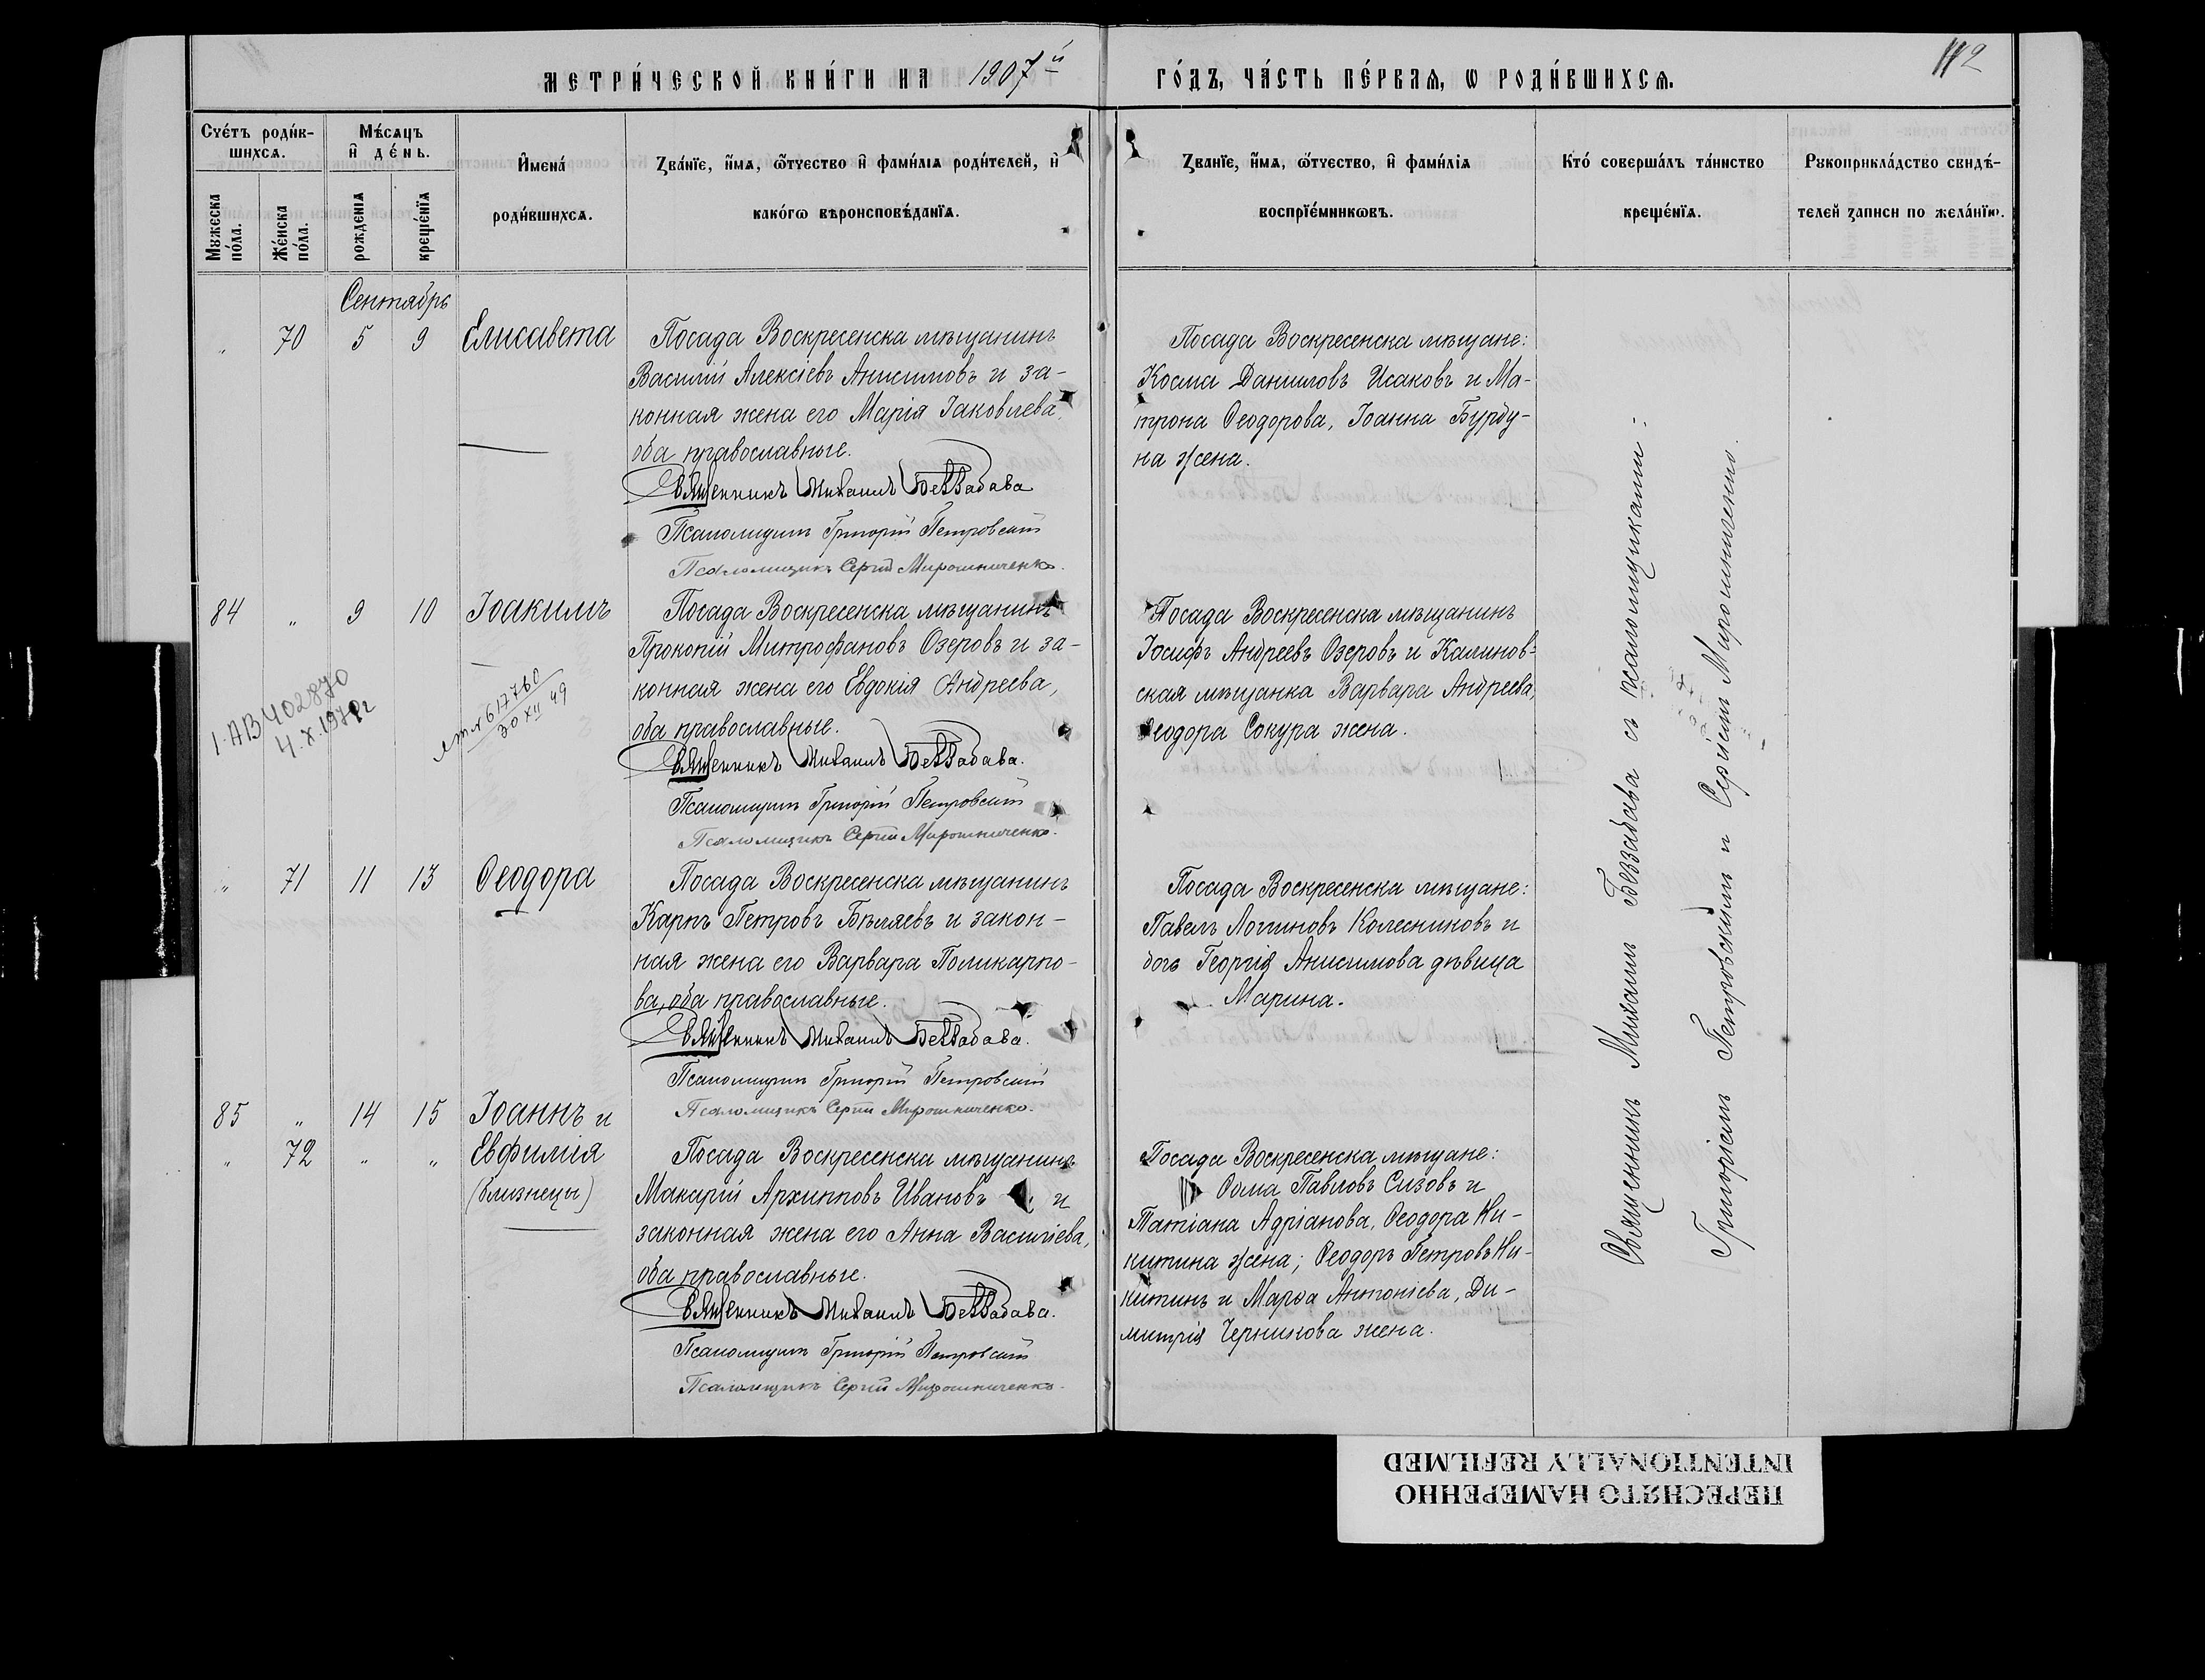 МЕТРИ́ЧЕСКОЙ КНИ́ГИ НА 1907й
ГО́ДЪ, ЧА́СТЬ ПЕ́РВАѦ, Ѡ РОДИ́ВШИХСѦ.
112
Счéтъ роди́в-
шихсѧ.
Мужеска
по́ла.
Же́нска
по́ла.
Мѣ́сѧцъ
и҆ де́нь.
рожденїѧ
креще́нїѧ
И҆мена́
роди́вшихсѧ.
Зва́нїе, и҆́мѧ, ѻ҆́тчество и҆ фами́лїѧ роди́телей, и҆
како́гѡ вѣроисповѣ́данїѧ.
Зва́нїе, и҆́мѧ, ѻ҆́тчество, и҆ фами́лїѧ
воспрїе́мникѡвъ.
Кто́ соверша́лъ та́инство
креще́нїѧ.
Рукоприкла́дство свидѣ́-
телей записи по жела́нїю.
Сентябрь
„ 70 5 9 Елисавета
Посада Воскресенска мѣщанинъ
Василій Алексіевъ Анисимовъ и за-
конная жена его Марія Іаковлева,
оба православные.
Священникъ Михаилъ Беззабава
Псаломщикъ Григорій Петровскій
Псаломщикъ Сергій Мирошниченко.
Посада Воскресенска мѣщане:
Косма Даниловъ Исаковъ и Ма-
трона Ѳеодорова, Іоанна Бурду-
на жена.
84 „ 9 10 Іоакимъ
1.АВ402870
4.X.1970г
617760
30 XII 49
Посада Воскресенска мѣщанинъ
Прокопій Митрофановъ Озеровъ и за-
конная жена его Евдокія Андреева,
оба православные.
Священникъ Михаилъ Беззабава.
Псаломщикъ Григорій Петровскій
Псаломщикъ Сергій Мирошниченко.
Посада Воскресенска мѣщанинъ
Іосифъ Андреевъ Озеровъ и Калинов-
ская мѣщанка Варвара Андреева,
Ѳеодора Сокура жена.
„ 71 11 13 Ѳеодора
Посада Воскресенска мѣщанинъ
Карпъ Петровъ Бѣляевъ и закон-
ная жена его Варвара Поликарпо-
ва, оба православные.
Священникъ Михаилъ Беззабава.
Псаломщикъ Григорій Петровскій
Псаломщикъ Сергій Мирошниченко.
Посада Воскресенска мѣщане:
Павелъ Логиновъ Колесниковъ и
дочь Георгія Анисимова дѣвица
Марина.
85 „ 14 15 Іоаннъ и
„ 72 „ „ Евфимія
(близнецы)
Посада Воскресенска мѣщанинъ
Макарій Архипповъ Ивановъ и
законная жена его Анна Василіева,
оба православные.
Священникъ Михаилъ Беззабава.
Псаломщикъ Григорій Петровскій
Псаломщикъ Сергій Мирошниченко.
Посада Воскресенска мѣщане:
Ѳома Павловъ Сизовъ и
Татіана Адріанова, Ѳеодора Ни-
китина жена; Ѳеодоръ Петровъ Ни-
китинъ и Марѳа Антоніева, Ди-
митрія Черникова жена.
Священникъ Михаилъ Беззабава съ псаломщиками:
Григоріемъ Петровскимъ и Сергіемъ Мирошниченко.
ПЕРЕСНЯТО НАМЕРЕННО
INTENTIONALLY REFILMED